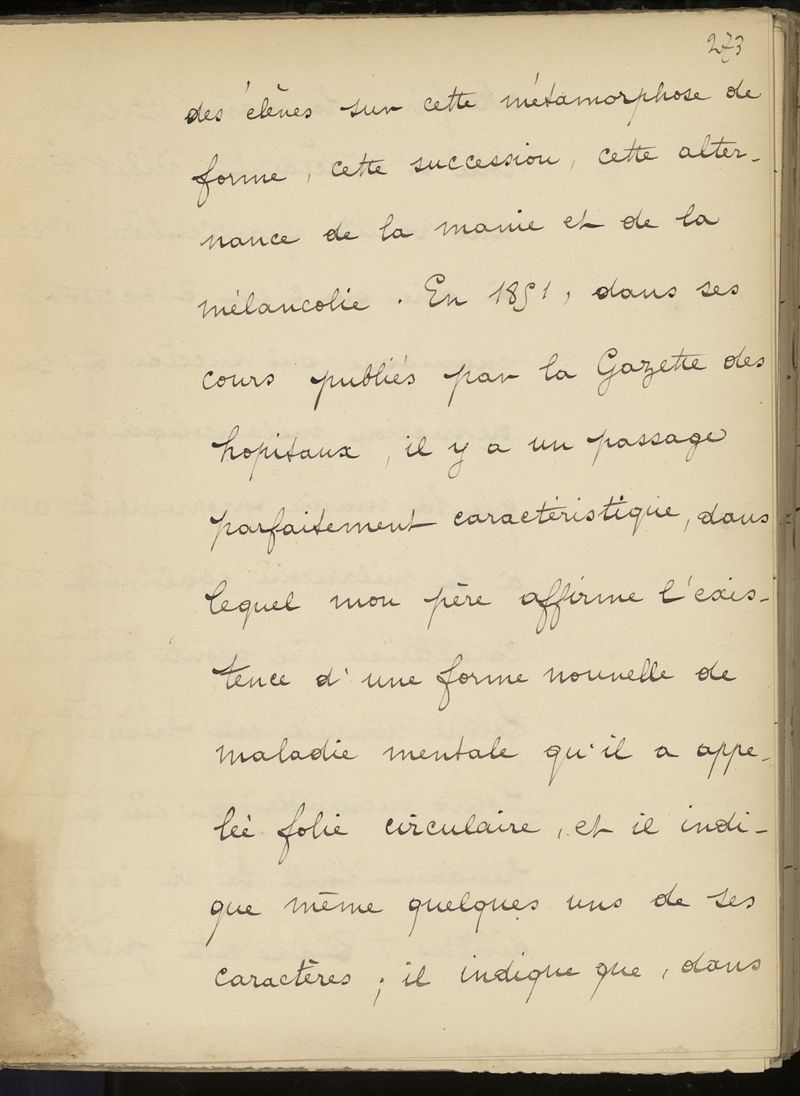 273
des élèves sur cette métamorphose de
forme, cette succession, cette alter-
nance de la manie et de la
mélancolie. En 1851, dans ses
cours publiés par la Gazette des
hopitaux, il y a un passage
parfaitement caractéristique, dans
lequel mon père affirme l'exis-
tence d'une forme nouvelle de
maladie mentale qu'il a appe-
leé folie circulaire, et il indi-
que même quelques uns de ses
caractères ; il indique que, dans